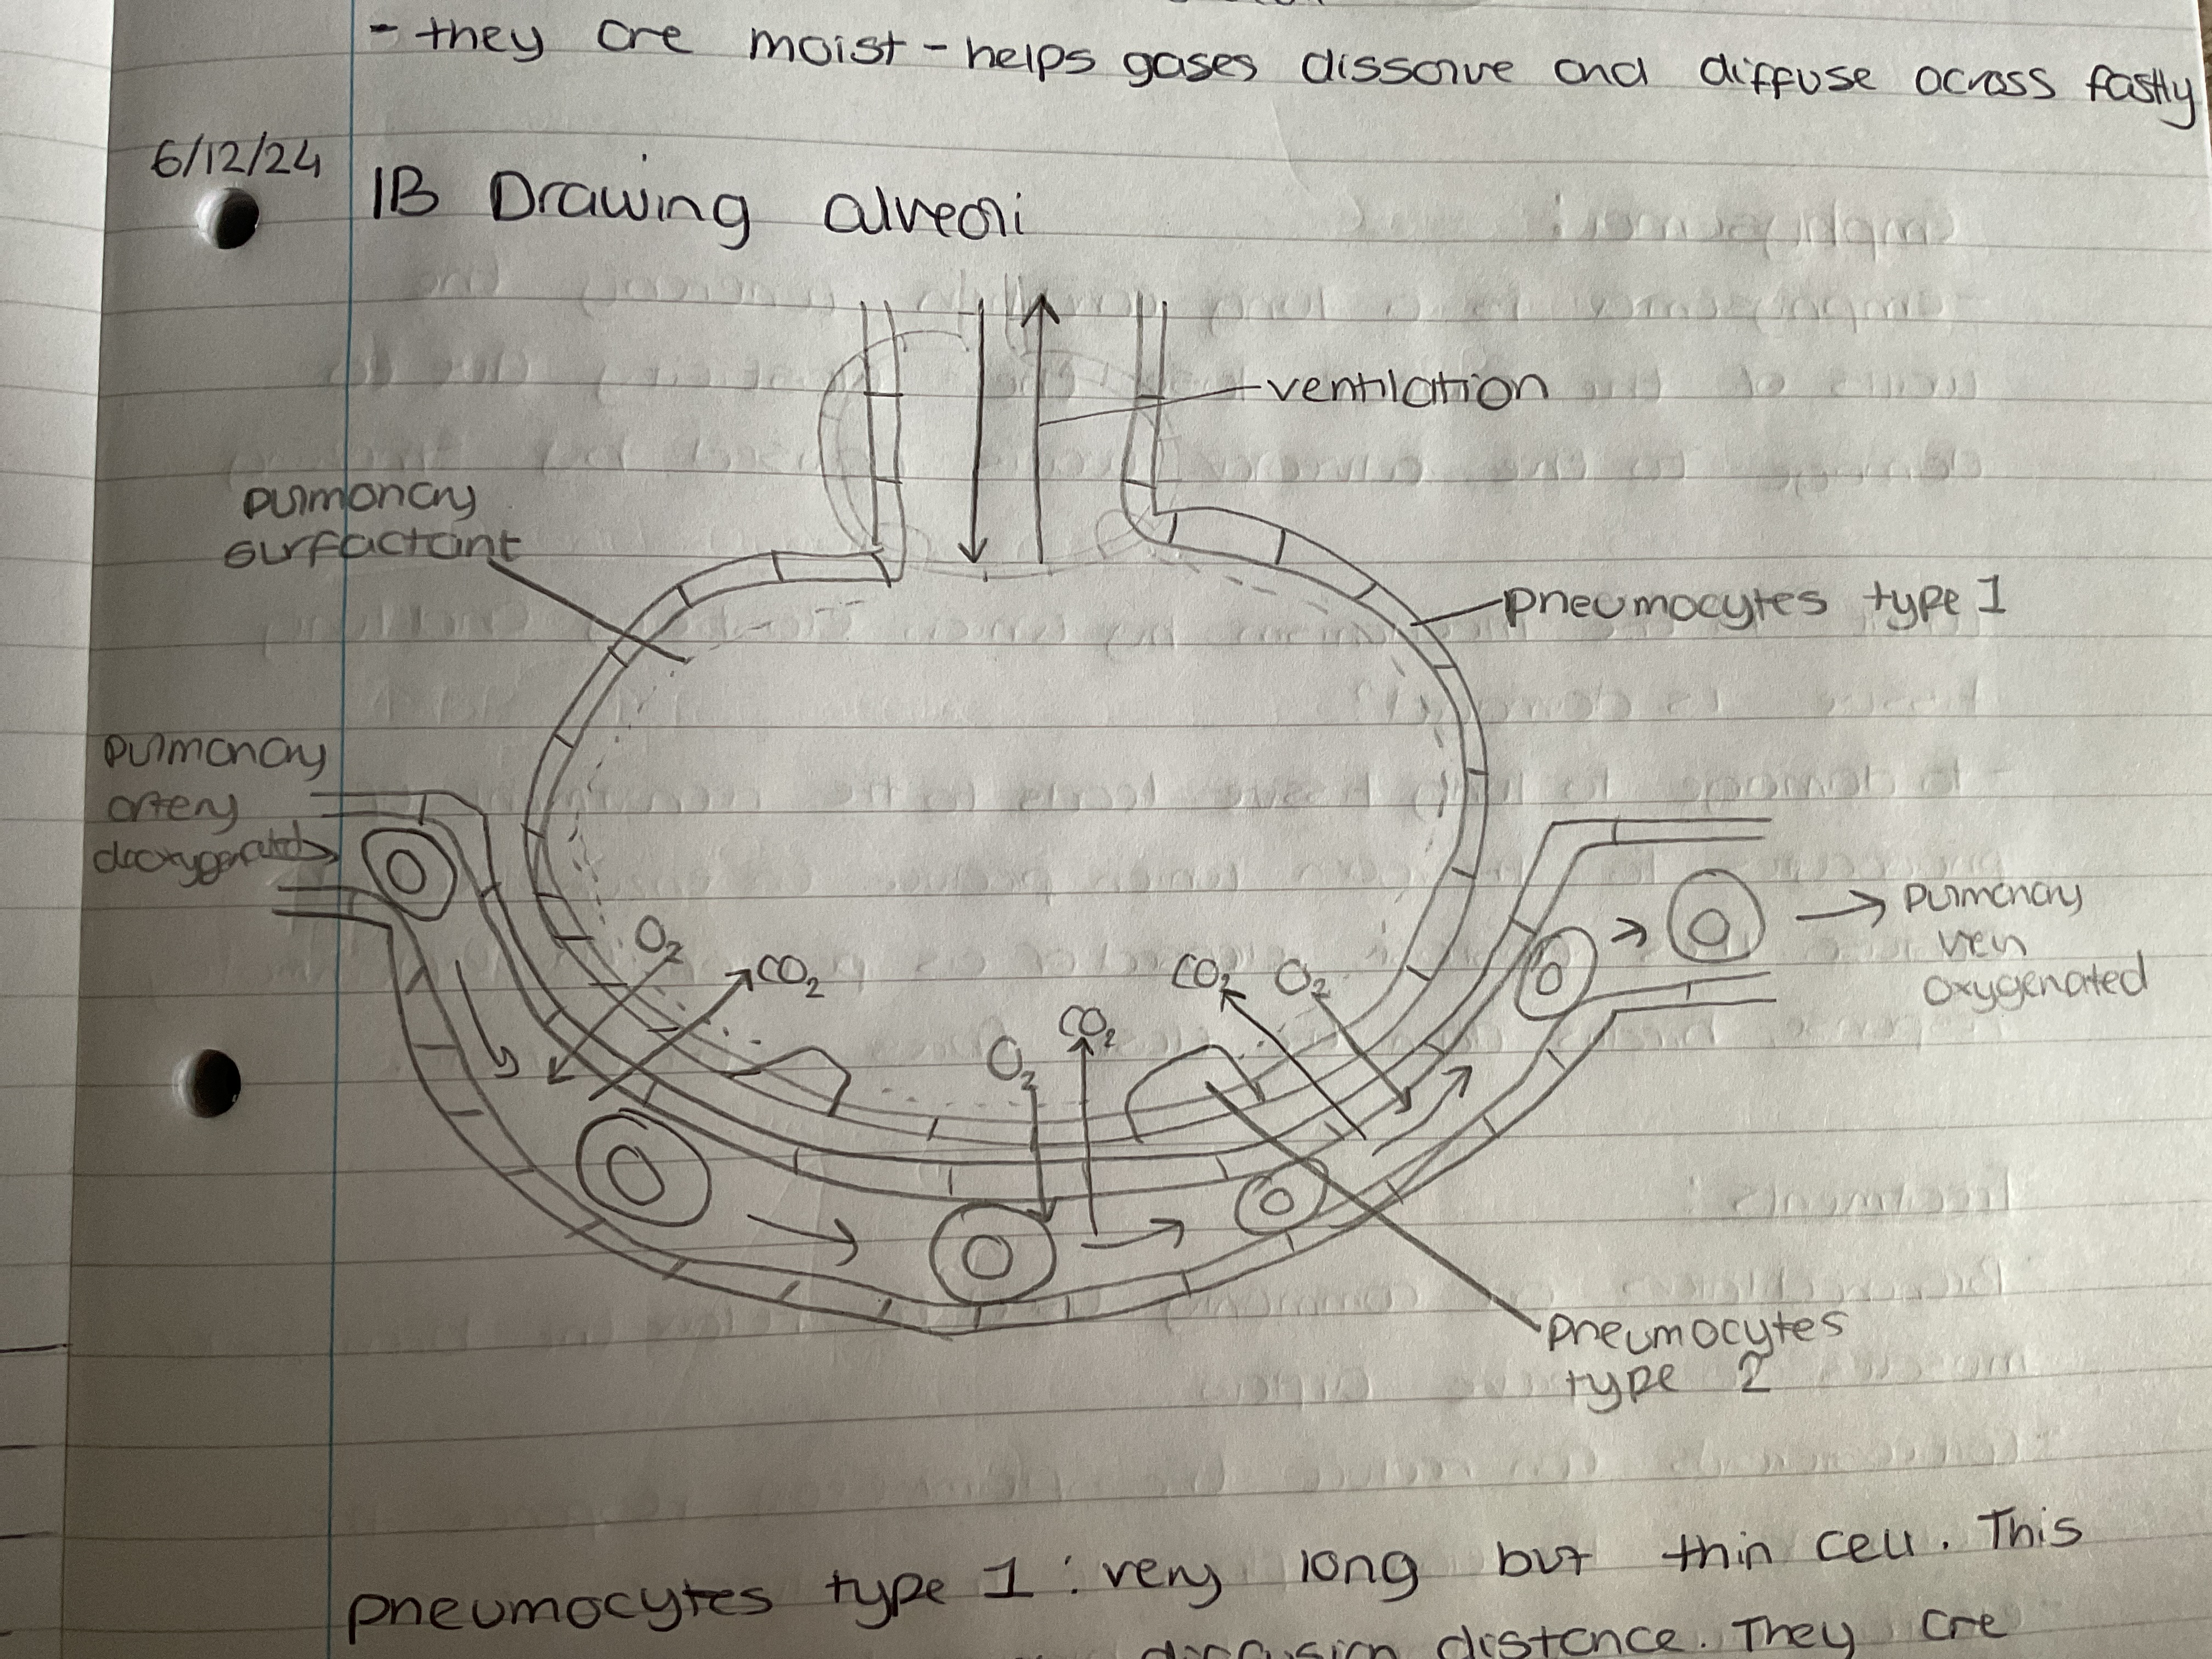 - they are moist - helps gases dissolve and diffuse across fastly
6/12/24
IB Drawing alveoli
ventilation
pulmonary
surfactant
pneumocytes type 1
pulmonary
artery
deoxygenated
pulmonary
vein
oxygenated
O2
CO2
O2
CO2
CO2
O2
pneumocytes
type 2
pneumocytes type 1 : very long but thin cell. This
diffusion distance. They are